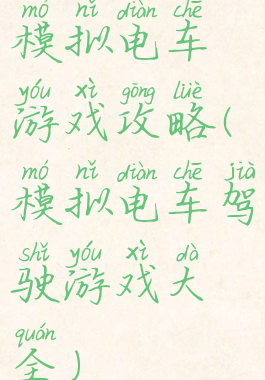 mó nǐ diàn chē
模拟电车
yóu xì gōng lüè
游戏攻略(
mó nǐ diàn chē jià
模拟电车驾
shǐ yóu xì dà
驶游戏大
quán
全)